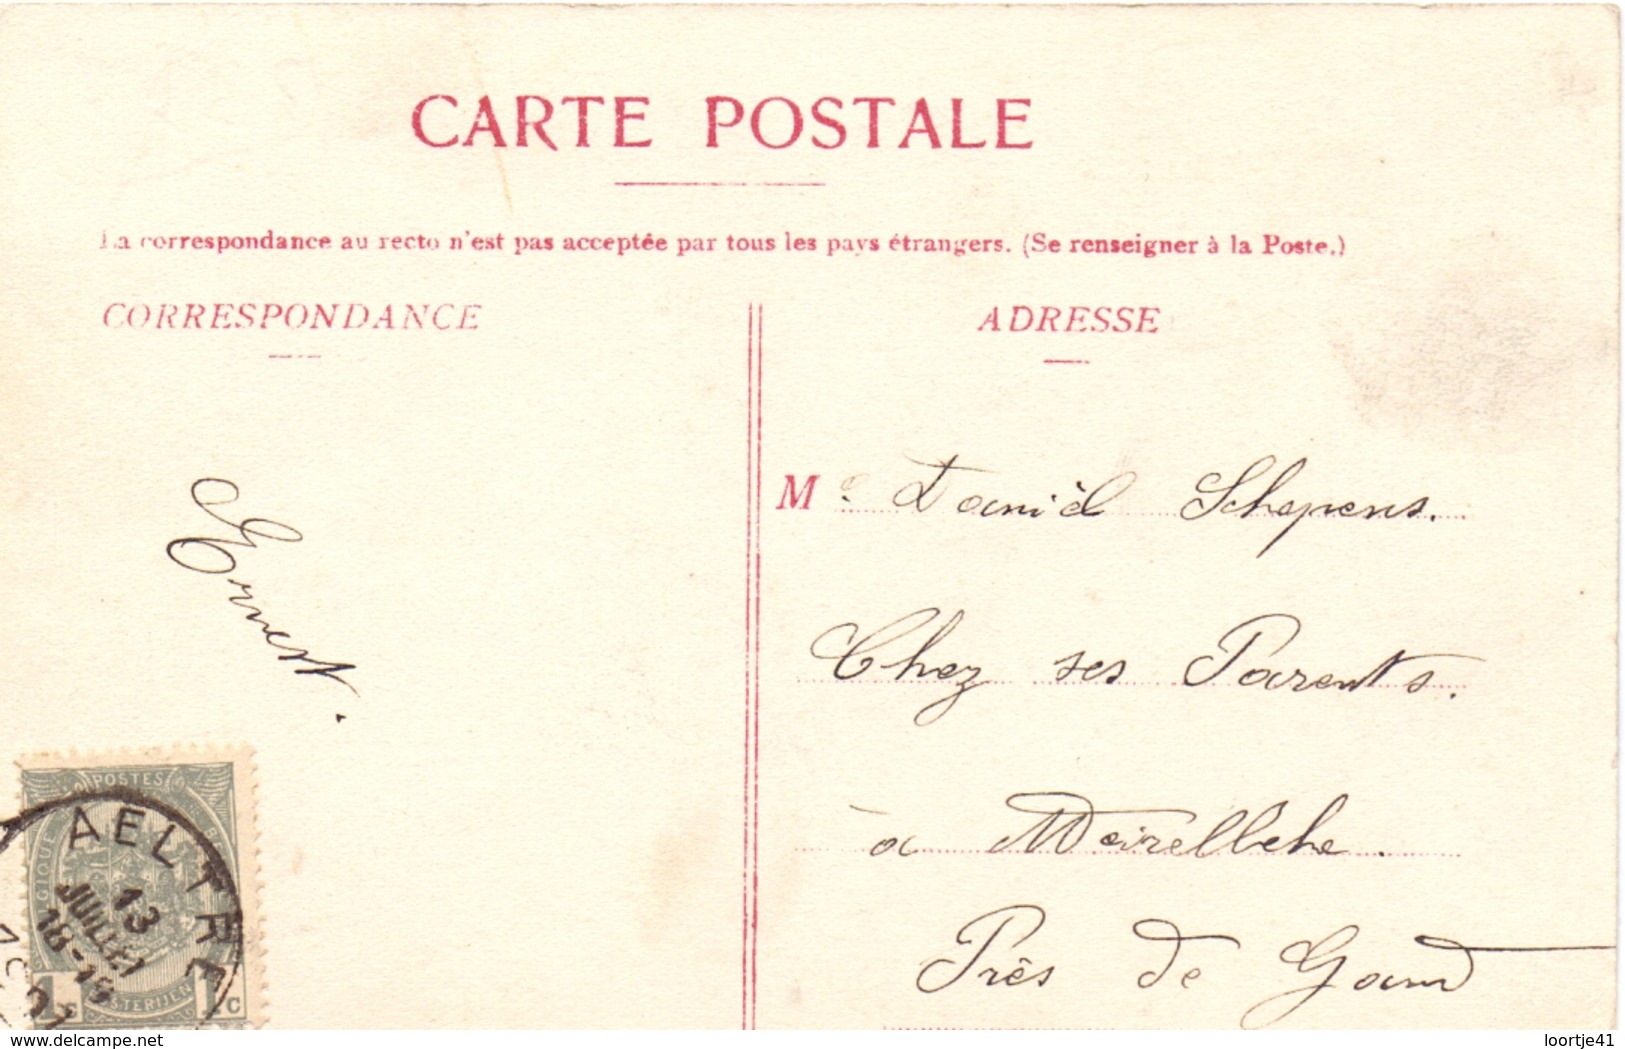 CARTE POSTALE
La correspondance au recto n'est pas acceptée par tous les pays étrangers. (Se renseigner à la Poste.)
CORRESPONDANCE
ADRESSE
M. Daniël Schepens.
Chez ses Parents.
à Meirelbeke.
Près de Gand
Ernest.
POSTES
GIQUE
AELTRE
13
JUILLET
18-19
1c 1c
delcampe.net
loortje41